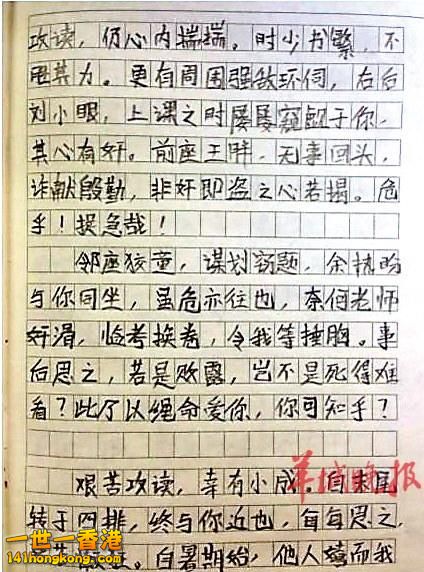 攻读，仍心内揣揣。时少书繁，不
其力。更有周围强敌环伺，右后
刘小眼，上课之时屡屡窥觎于你，
其心有奸。前座王胖，无事回头，
诈献殷勤，非奸即盗之心若揭。危
乎！捉急哉！
邻座狡童，谋划窃题，余
与你同坐，虽危亦往也，奈何老师
奸滑，临考换卷，令我等捶胸。事
后思之，若是败露，岂不是死得难
看？此乃以绳命爱你，你可知乎？
艰苦攻读，幸有小成。自末尾
羊城晚报
转于四排，终与你近也，每每思之，
一世一香港
自暑期始，他人嬉而我
141hongkong.com